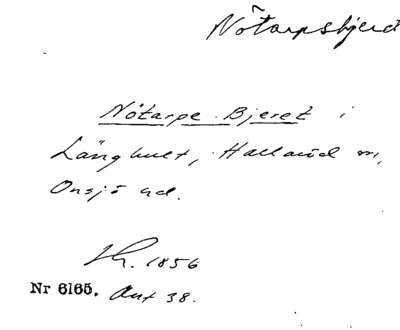 Nötarpsbjerd
Nötarpe Bjeret i
Långhult, Halland m,
Onsjö hd.
1856
Nr 6165. Ant 38.